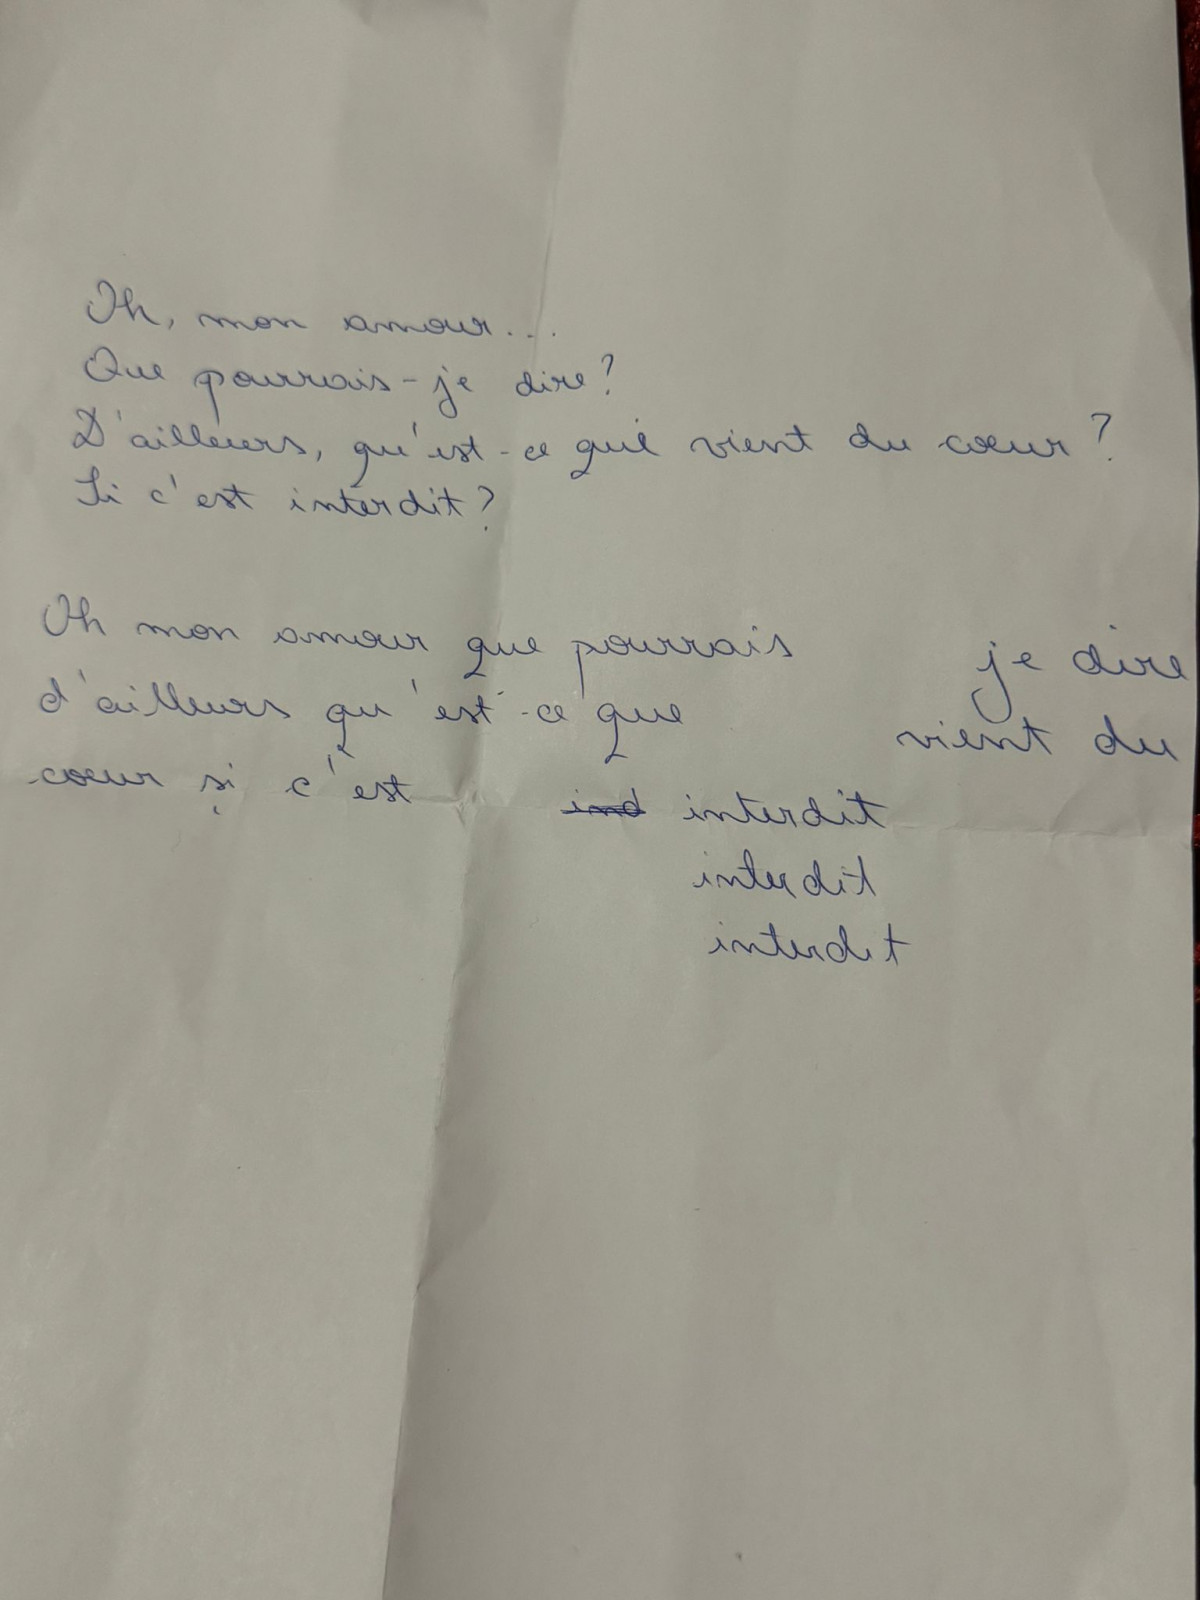 Oh, mon amour...
Que pourrais-je dire?
D'ailleurs, qu'est-ce qui vient du cœur?
Si c'est interdit?
Oh mon amour que pourrais je dire
d'ailleurs qu'est-ce que vient du
cœur si c'est ind interdit
interdit
interdit